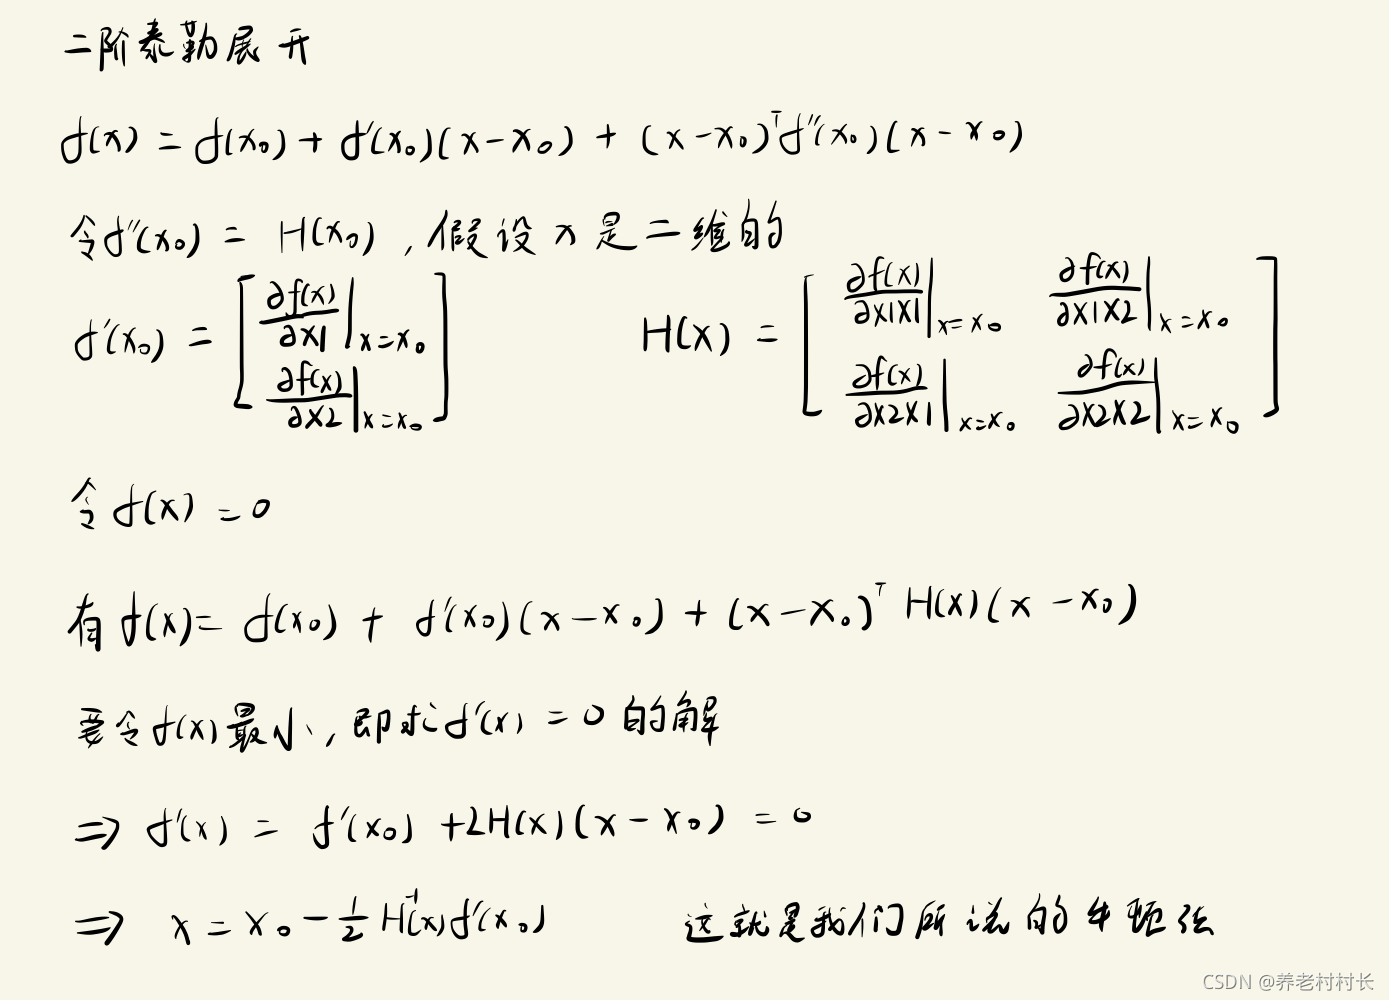 二阶泰勒展开
f(x) = f(x₀) + f'(x₀)(x-x₀) + (x-x₀)ᵀf''(x₀)(x-x₀)
令f''(x₀) = H(x₀),假设x是二维的
f'(x₀) = [∂f(x)/∂x1|x=x₀ ∂f(x)/∂x2|x=x₀] H(x) = [∂f(x)/∂x1x1|x=x₀ ∂f(x)/∂x1x2|x=x₀ ∂f(x)/∂x2x1|x=x₀ ∂f(x)/∂x2x2|x=x₀]
令f(x) = 0
有f(x) = f(x₀) + f'(x₀)(x-x₀) + (x-x₀)ᵀ H(x)(x-x₀)
要令f(x)最小,即求f'(x) = 0的解
⇒ f'(x) = f'(x₀) + 2H(x)(x-x₀) = 0
⇒ x = x₀ - 1/2 H⁻¹(x)f'(x₀) 这就是我们所说的牛顿法
CSDN @养老村村长